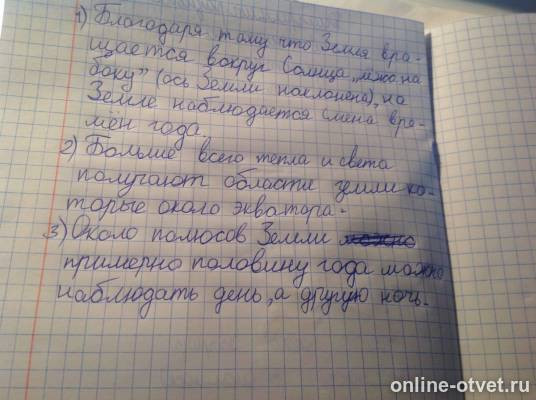 1) Благодаря тому что Земля вра-
щается вокруг Солнца „лёжа на
боку" (ось Земли наклонена), на
Земле наблюдается смена вре-
мен года.
2) Больше всего тепла и света
получают области земли ко-
торые около экватора.
3) Около полюсов Земли
примерно половину года можно
наблюдать день, а другую ночь.
online-otvet.ru